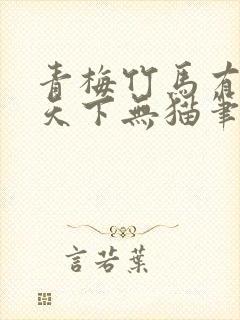 青梅竹馬有
天下無貓筆
言若葉